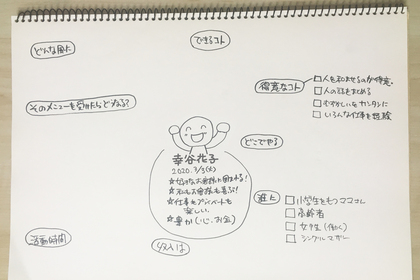 どんな風に
できるコト
得意なコト
□人を和ませるのが得意
□人の話をまとめる
□むずかしいをカンタンに
□いろんな仕事を経験
そのメニューを受けたらどうなる?
どこでやる
幸谷花子
2020.7/5(火)
☆好きなお客様に囲まれる!
☆私もお客様も喜ぶ!
☆仕事もプライベートも
楽しい
☆豊か(心、お金)
誰に
□小学生をもつママさん
□高齢者
□女子生(働く)
□シングルマザー
活動時間
収入は